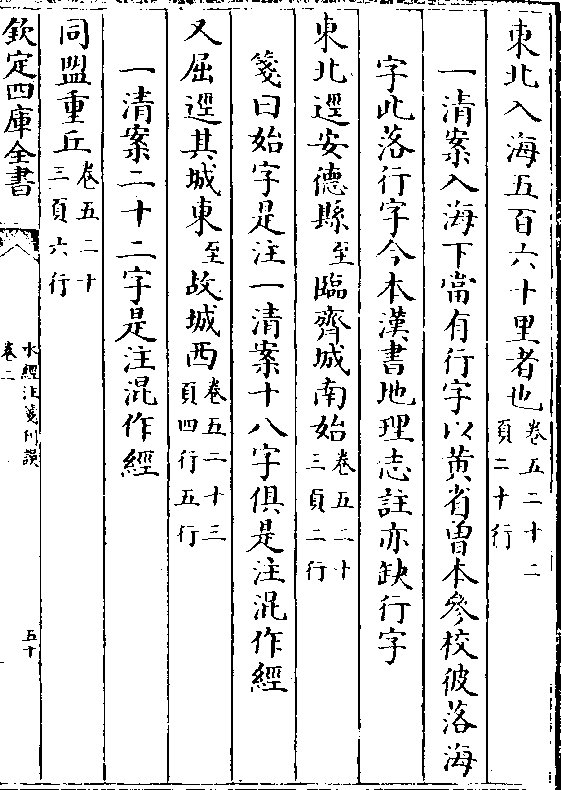 東北入海五百六十里者也卷五二十二頁二十行
一清案入海下當有行字以黄省曾本參校彼落海
字此落行字今本漢書地理志註亦缺行字
東北逕安德縣至臨齊城南始卷五二十三頁二行
箋曰始字是注一清案十八字俱是注混作經
又屈逕其城東至故城西卷五二十三頁四行五行
一清案二十二字是注混作經
同盟重丘卷五二十三頁六行
欽定四庫全書
水經注箋刋誤
卷二
五十